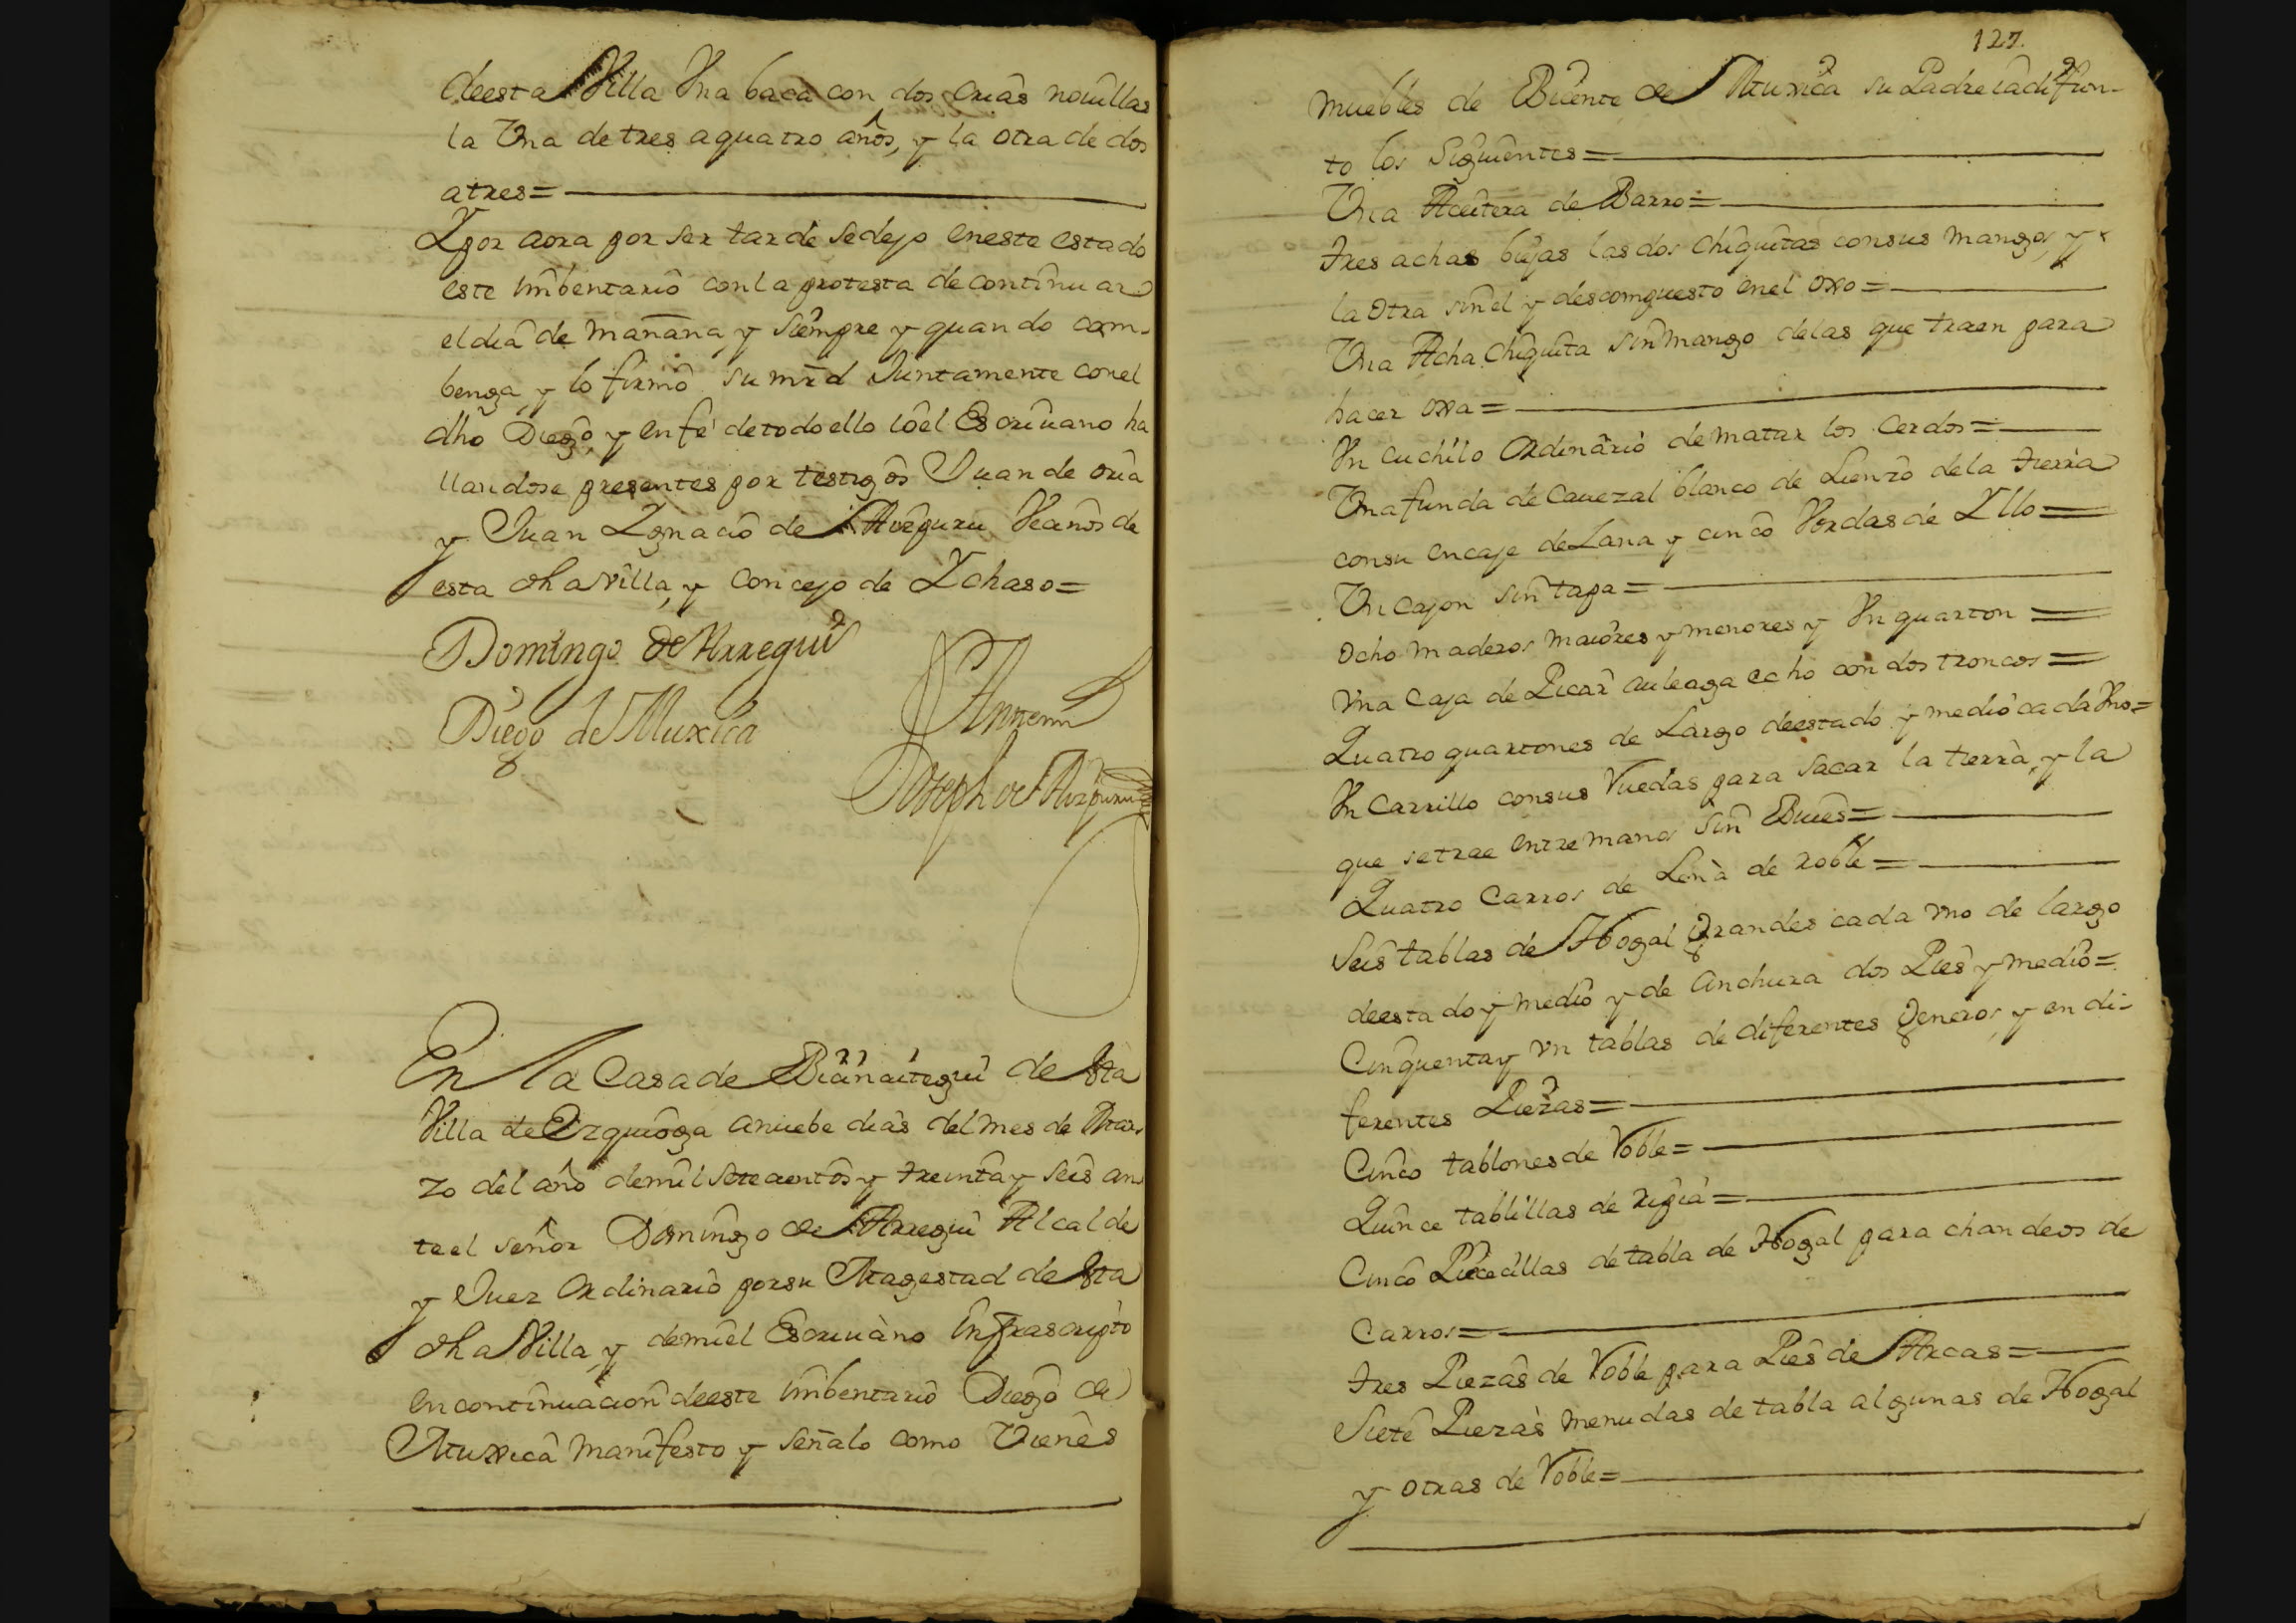 deesta Villa Vna baca con dos crias nouillas
la Vna de tres aquatro años, y la otra de dos
atres=
Ypor aora por ser tarde sedejo eneste estado
este Imbentario conla protesta decontinuar
eldia de mañana y siempre y quando com-
benga, y lo firmô su mrd Juntamente conel
dho Diego, y enfé detodoello ioel Escriuano ha
llandose presentes por testigos Juan de oria
y Juan Ygnacio de Aizpuru Vecinos de
esta dha villa, y Concejo de Ychaso=
Domingo de Arregui
Diego de Muxica
Antemi
Joseph de Aizpuru
En la Casa de de esta
Villa de Ezquioga anuebe dias del mes de Mar
zo del año demil setecientos y treinta y seis an
teel señor Domingo de Arregui Alcalde
y Juez Ordinario porsu Magestad de esta
dha Villa, y demiel Escriuano Infrascripto
encontinuacion deeste Imbentario Diego de
Muxica manifesto y señalo como Vienes
127.
muebles de Bicente de Muxica su Padre ia difun-
to los Siguientes=
Vna Aceitera de Barro=
tres achas biejas las dos chiquitas consus mangos, y
la otra sinel y descompuesto enel oxo=
Vna Acha chiquita sin mango delas que traen para
hacer oxa=
Vn cuchilo Ordinario de matar los Cerdos=
Vna funda de Cauezal blanco de Lienzo dela tierra
consu encaje de Lana y cinco Vordas de Yllo=
Vn cajon sin tapa=
ocho maderos maiores y menores y Vn quarton=
vna Caja de Picar auleaga echo con dos troncos=
Quatro quartones de Largo deestado y medio cada Vno=
Vn Carrillo consus Vuedas para sacar la tierra, y la
que setrae entre manos sin Bues=
Quatro Carros de Leña de roble=
Seis tablas de Nogal grandes cada vno de largo
deestado y medio y de anchura dos Pies y medio=
Cinquentay vn tablas de diferentes generos, y en di-
ferentes Piezas=
Cinco tablones de Voble=
Quince tablillas de ripia=
Cinco Piececillas de tabla de Nogal para chandeos de
Carros=
tres Piezas de Voble para Pies de Arcas=
Siete Piezas menudas de tabla algunas de Nogal
y otras de Voble=